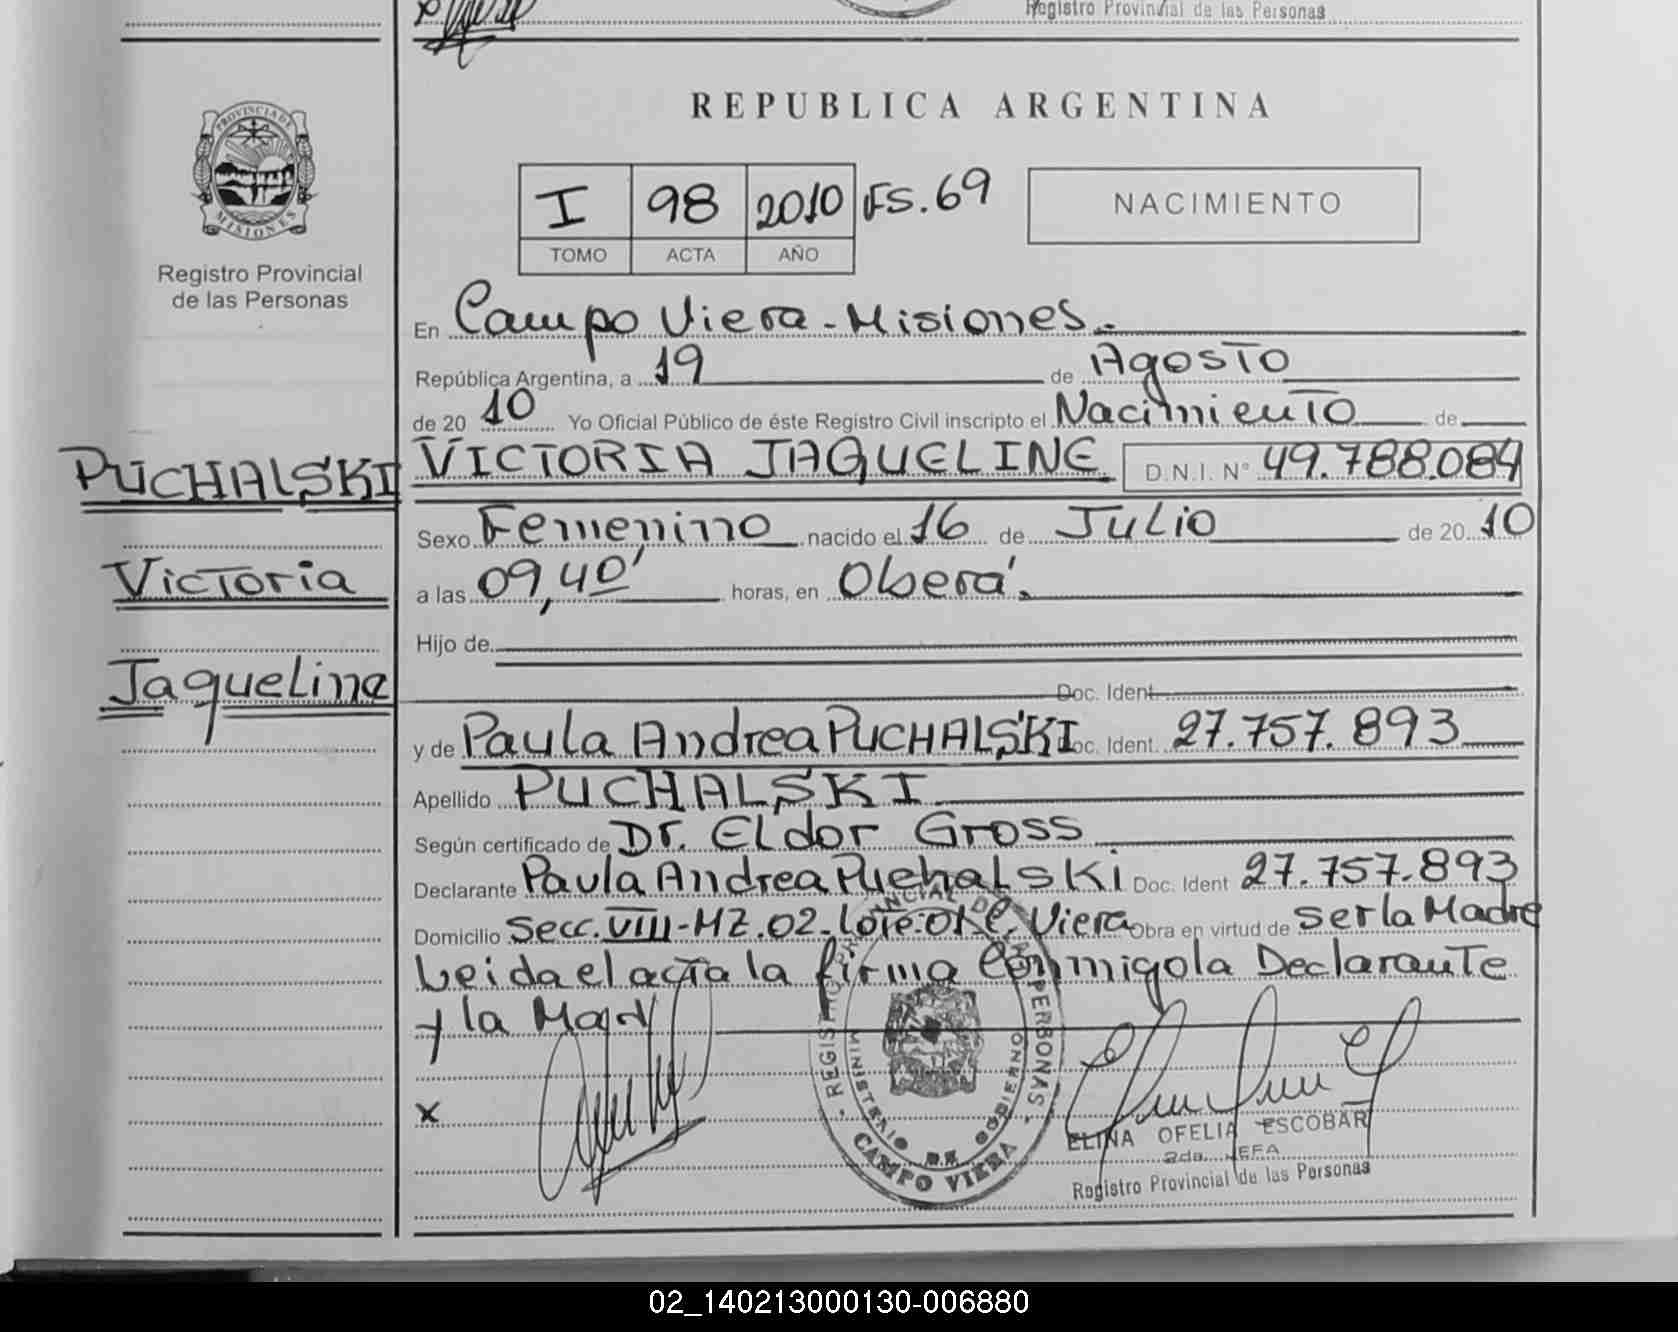 Registro Provincial de las Personas
PROVINCIA DE
MISIONES
Registro Provincial
de las Personas
REPUBLICA ARGENTINA
I 98 2010 FS.69
TOMO ACTA AÑO
NACIMIENTO
En Campo Viera - Misiones.-
República Argentina, a 19 de Agosto
de 20 10 Yo Oficial Público de éste Registro Civil inscripto el Nacimiento de
PUCHALSKI VICTORIA JAQUELINE D.N.I. N° 49.788.084
Sexo Femenino nacido el 16 de Julio de 20 10
Victoria
a las 09,40' horas, en Oberá.
Hijo de
Jaqueline
Doc. Ident
y de Paula Andrea PUCHALSKI Doc. Ident. 27.757.893
Apellido PUCHALSKI
Según certificado de Dr. Eldor Gross
Declarante Paula Andrea Puchalski Doc. Ident 27.757.893
Domicilio Secc. VIII - MZ. 02 - Lote: 01 C. Viera Obra en virtud de Ser la Madre
Leida el acta la firma Conmigo la Declarante
y la Madre
x
REGISTRO PROVINCIAL DE LAS PERSONAS
MINISTERIO DE GOBIERNO
CAMPO VIERA
ELINA OFELIA ESCOBAR
2da. JEFA
Registro Provincial de las Personas
02_140213000130-006880